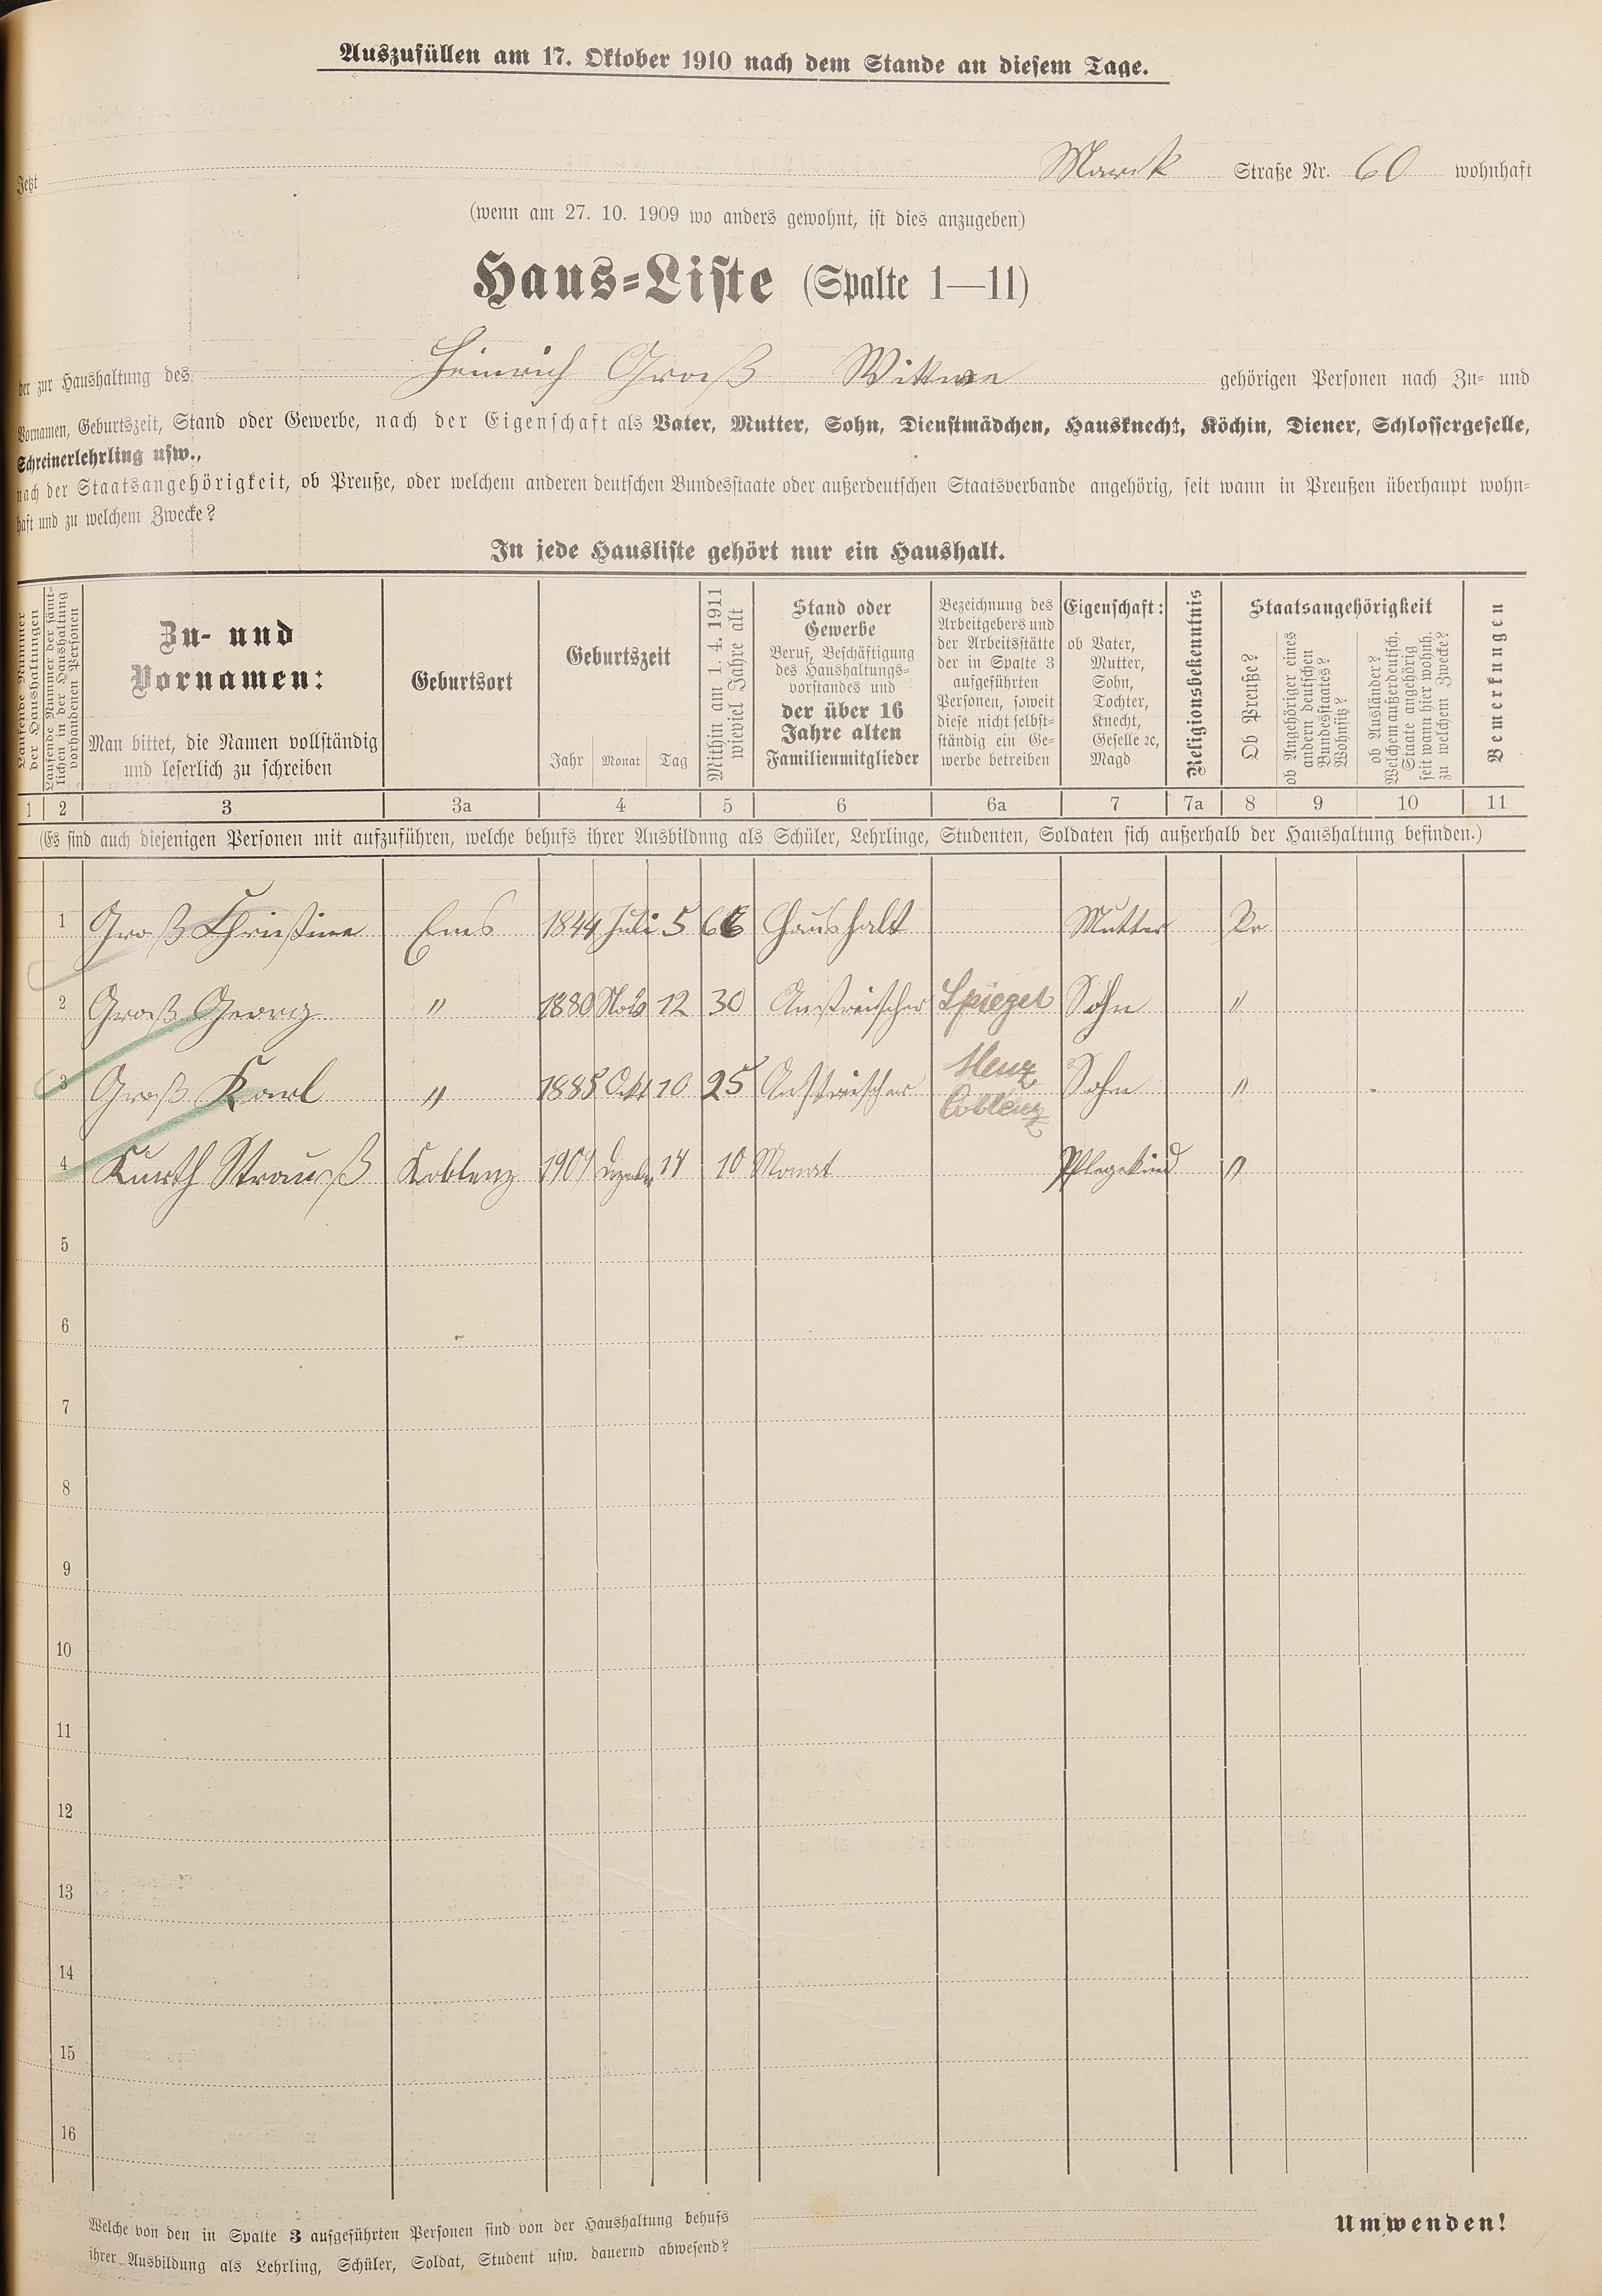 Auszufüllen am 17. Oktober 1910 nach dem Stande an diesem Tage.
Jetzt Markt Straße Nr. 60 wohnhaft
(wenn am 27. 10. 1909 wo anders gewohnt, ist dies anzugeben)
Haus-Liste (Spalte 1—11)
der zur Haushaltung des Heinrich Groß Wittwe gehörigen Personen nach Zu- und
Vornamen, Geburtszeit, Stand oder Gewerbe, nach der Eigenschaft als Vater, Mutter, Sohn, Dienstmädchen, Hausknecht, Köchin, Diener, Schlossergeselle,
Schreinerlehrling usw.,
nach der Staatsangehörigkeit, ob Preuße, oder welchem anderen deutschen Bundesstaate oder außerdeutschen Staatsverbande angehörig, seit wann in Preußen überhaupt wohn-
haft und zu welchem Zwecke?
In jede Hausliste gehört nur ein Haushalt.
Laufende Nummer
der Haushaltungen
Laufende Nummer der sämt-
lichen in der Haushaltung
vorhandenen Personen
Zu- und
Vornamen:
Man bittet, die Namen vollständig
und leserlich zu schreiben
Geburtsort
Geburtszeit
Jahr Monat Tag
Mithin am 1. 4. 1911
wieviel Jahre alt
Stand oder
Gewerbe
Beruf, Beschäftigung
des Haushaltungs-
vorstandes und
der über 16
Jahre alten
Familienmitglieder
Bezeichnung des
Arbeitgebers und
der Arbeitsstätte
der in Spalte 3
aufgeführten
Personen, soweit
diese nicht selbst-
ständig ein Ge-
werbe betreiben
Eigenschaft:
ob Vater,
Mutter,
Sohn,
Tochter,
Knecht,
Geselle ꝛc,
Magd
Religionsbekenntnis
Staatsangehörigkeit
Ob Preuße?
ob Angehöriger eines
andern deutschen
Bundesstaates?
Wohnsitz?
ob Ausländer?
Welchem außerdeutsch.
Staate angehörig
seit wann hier wohnh.
zu welchem Zwecke?
Bemerkungen
1 2 3 3a 4 5 6 6a 7 7a 8 9 10 11
(Es sind auch diejenigen Personen mit aufzuführen, welche behufs ihrer Ausbildung als Schüler, Lehrlinge, Studenten, Soldaten sich außerhalb der Haushaltung befinden.)
1 Groß Christine Ems 1844 Juli 5 66 Haushalt Mutter Pr
2 Groß Georg " 1880 Nob 12 30 Anstreicher Spiegel Sohn "
3 Groß Karl " 1885 Okt 10 25 Anstreicher Menz Coblenz Sohn "
4 Kurth Strauß Koblenz 1909 Dezember 14 10 Monat Pflegekind "
5
6
7
8
9
10
11
12
13
14
15
16
Welche von den in Spalte 3 aufgeführten Personen sind von der Haushaltung behufs
ihrer Ausbildung als Lehrling, Schüler, Soldat, Student usw. dauernd abwesend?
Umwenden!